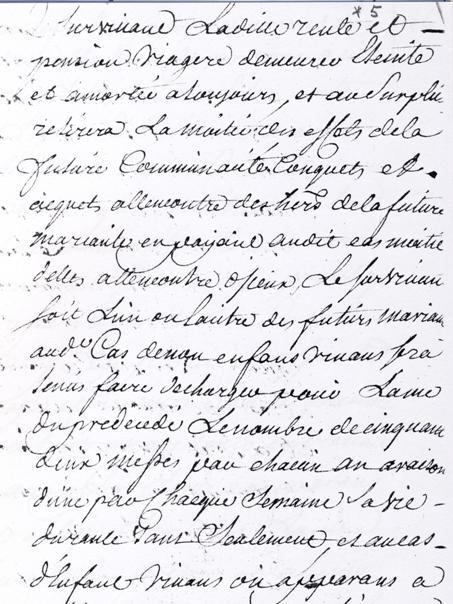 * 5
Survivant Laditte rente et
pension Viagere demeurer Eteinte
et amortie atoujours, et au Surplus
retirera La moitié des effets dela
future Communauté, Conquets et
acquets allencontre des hers de la future
mariante en payant audit cas moitié
delles allencontre d'jceux, Le survivan
soit Lun ou lautre des futurs marian
aud.t Cas denon enfans vivans sera
tenus faire decharger pour Lame
du predecedé Lenombre de cinquan
deux messes par chacun an araison
dune par Chacque Semaine Sa vie
durante Tant Sealement, et aucas
d'Enfant Vivans ou apparans a